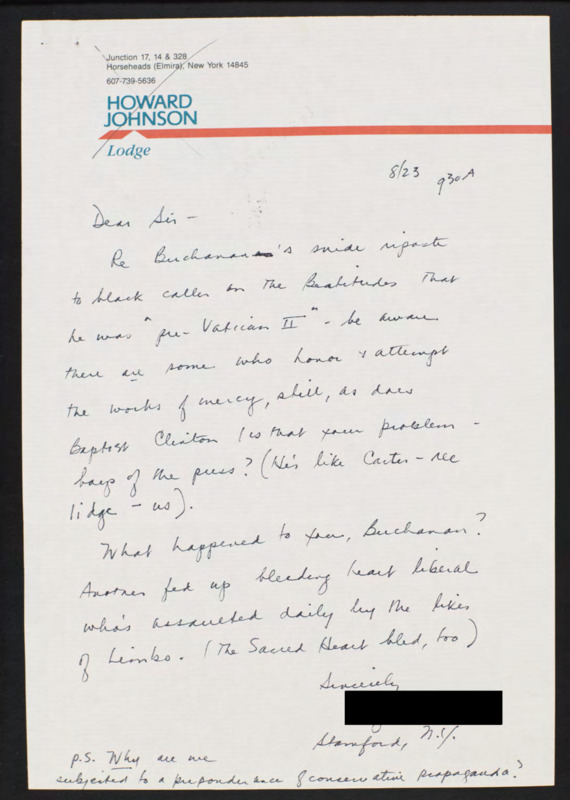 Junction 17, 14 & 328
Horseheads (Elmira), New York 14845
607-739-5636
HOWARD
JOHNSON
Lodge
8/23 930A
Dear Sir -
Re Buchanan's snide riposte
to black caller on the Beatitudes that
he was "pre-Vatican II" - be aware
there are some who honor & attempt
the works of mercy, still, as does
Baptist Clinton (is that your problem -
boys of the press? (He's like Carter - 
- us).
What happened to you, Buchanan?
Another fed up bleeding heart liberal
who's assaulted daily by the likes
of Limbo. (The Sacred Heart bled, too)
Sincerely
Stamford, N.Y.
p.S. Why are we
subjected to a preponderance of conservative propaganda?